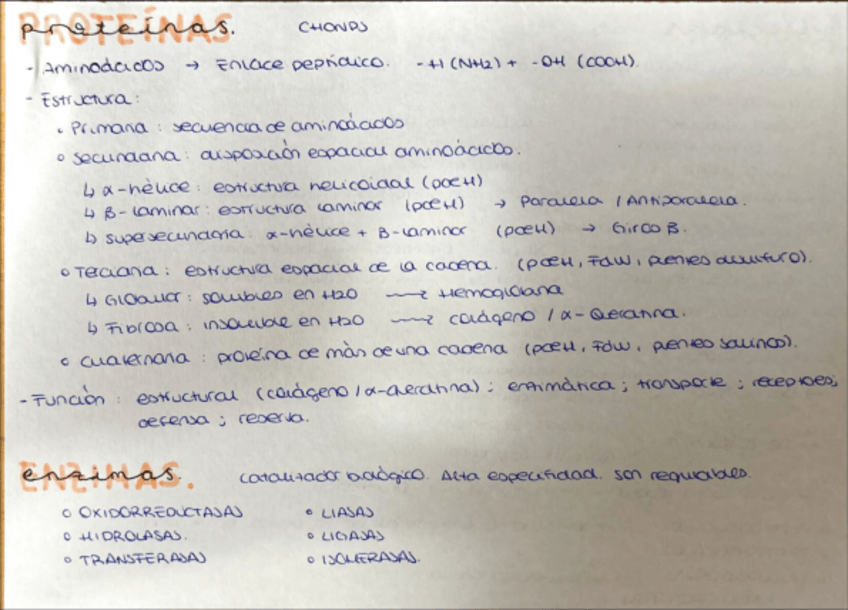 proteínas. CHONPS
- Aminoácidos → Enlace peptídico. -H (NH2) + -OH (COOH).
- Estructura:
• Primaria: secuencia de aminoácidos
o Secundaria: disposición espacial aminoácidos.
↳ α-hélice: estructura helicoidal (pdeH)
↳ β-laminar: estructura laminar (pdeH) → Paralela / Antiparalela.
↳ supersecundaria: α-hélice + β-laminar (pdeH) → Giros β.
o Terciaria: estructura espacial de la cadena. (pdeH, FdW, puentes disulfuro).
↳ Globular: solubles en H2O ⟶ Hemoglobina
↳ Fibrosa: insoluble en H2O ⟶ colágeno / α-Queratina.
o Cuaternaria: proteína de más de una cadena (pdeH, FdW, puentes salinos).
- Función: estructural (colágeno / α-queratina); enzimática; transporte; receptores;
defensa; reserva.
enzimas. Catalizador biológico. Alta especificidad. son regulables.
o OXIDORREDUCTASAS o LIASAS
o HIDROLASAS. o LIGASAS
o TRANSFERASAS o ISOMERASAS.